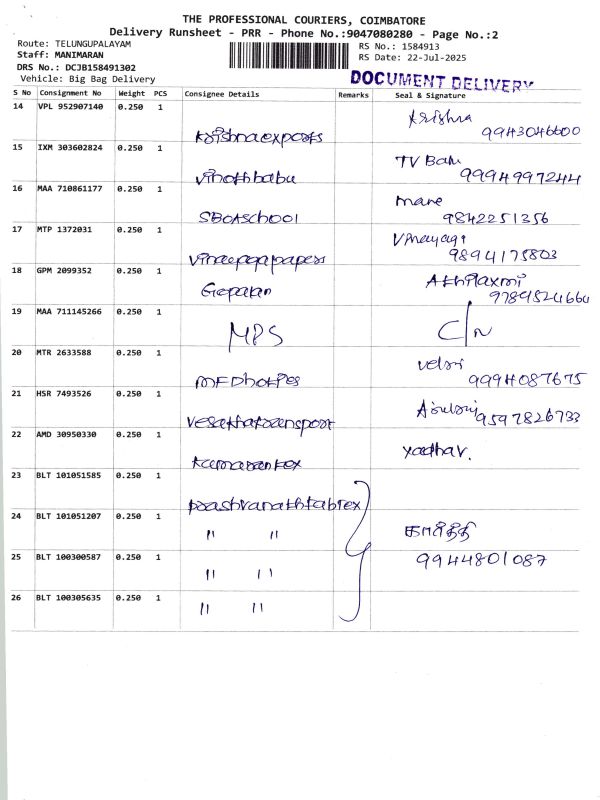 THE PROFESSIONAL COURIERS, COIMBATORE
Delivery Runsheet - PRR - Phone No.:9047080280 - Page No.:2
Route: TELUNGUPALAYAM
Staff: MANIMARAN
DRS No.: DCJB158491302
Vehicle: Big Bag Delivery
RS No.: 1584913
RS Date: 22-Jul-2025
DOCUMENT DELIVERY
S No Consignment No Weight PCS Consignee Details Remarks Seal & Signature
14 VPL 952907140 0.250 1 Krishna exports Krishna 9943046600
15 IXM 303602824 0.250 1 Vinothbabu TV Babu 9994997244
16 MAA 710861177 0.250 1 SBOA School mane 9842251356
17 MTP 1372031 0.250 1 Vinayagapapers Vinayagi 9894175803
18 GPM 2099352 0.250 1 Gopalan Athilaxmi 9789524664
19 MAA 711145266 0.250 1 MPS C/n
20 MTR 2633588 0.250 1 velsri 9994087675
21 HSR 7493526 0.250 1 Vesathatransport 9597826733
22 AMD 30950330 0.250 1 Kumarantex Yadhav.
23 BLT 101051585 0.250 1 Paashvanathfabrex
24 BLT 101051207 0.250 1 " "
25 BLT 100300587 0.250 1 " " 9944801087
26 BLT 100305635 0.250 1 " "